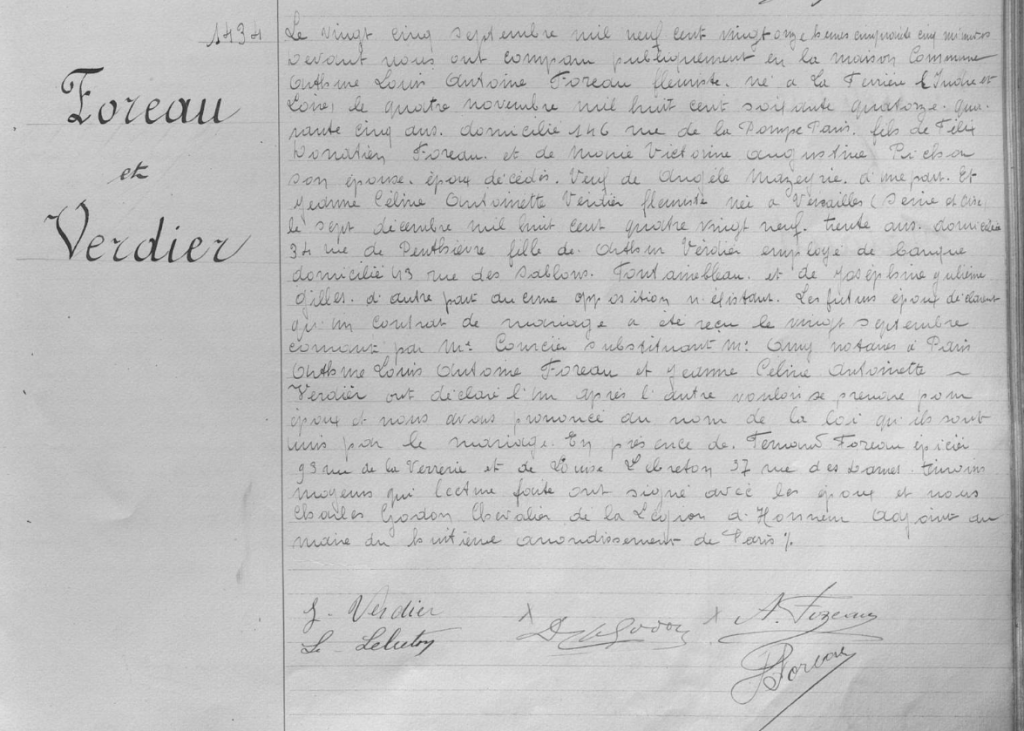 1434
Foreau
et
Verdier
Le vingt cinq septembre mil neuf cent vingt onze heures cinquante cinq minutes
devant nous ont comparu publiquement en la maison Commune
Arthur Louis Antoine Foreau fleuriste. né à La Ferrière (Indre et
Loire) le quatre novembre mil huit cent soixante quatorze. qua-
rante cinq ans. domicilié 146 rue de la Pompe Paris. fils de Félix
Donatien Foreau. et de Marie Victorine Augustine
son épouse. époux décédés. Veuf de Angèle Mazeyrie. d'une part. Et
Jeanne Céline Antoinette Verdier fleuriste née à Versailles (Seine et Oise)
le sept décembre mil huit cent quatre vingt neuf. trente ans. domiciliée
34 rue de Penthièvre fille de Arthur Verdier employé de banque
domicilié 43 rue des Sablons. Fontainebleau. et de Joséphine Julienne
Gilles. d'autre part aucune opposition n'existant. Les futurs époux déclarent
qu'un contrat de mariage a été reçu le vingt septembre
courant par Me Courcier substituant Me Amy notaires à Paris
Arthur Louis Antoine Foreau et Jeanne Céline Antoinette ~
Verdier ont déclaré l'un après l'autre vouloir se prendre pour
époux et nous avons prononcé au nom de la loi qu'ils sont
unis par le mariage. En présence de. Fernand Foreau épicier
93 rue de la Verrerie et de Louise Lebreton 37 rue des Dames. témoins
majeurs qui lecture faite ont signé avec les époux et nous
Charles Godon Chevalier de la Légion d'Honneur Adjoint au
maire du huitième arrondissement de Paris ./.
J. Verdier
A. Foreau
L. Lebreton
Godon
Foreau